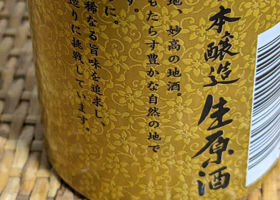 本醸造
生原酒
地 妙高の地酒。
もたらす豊かな自然の地で
す。
に。
稀なる旨味を追求し、
造りに挑戦しています。